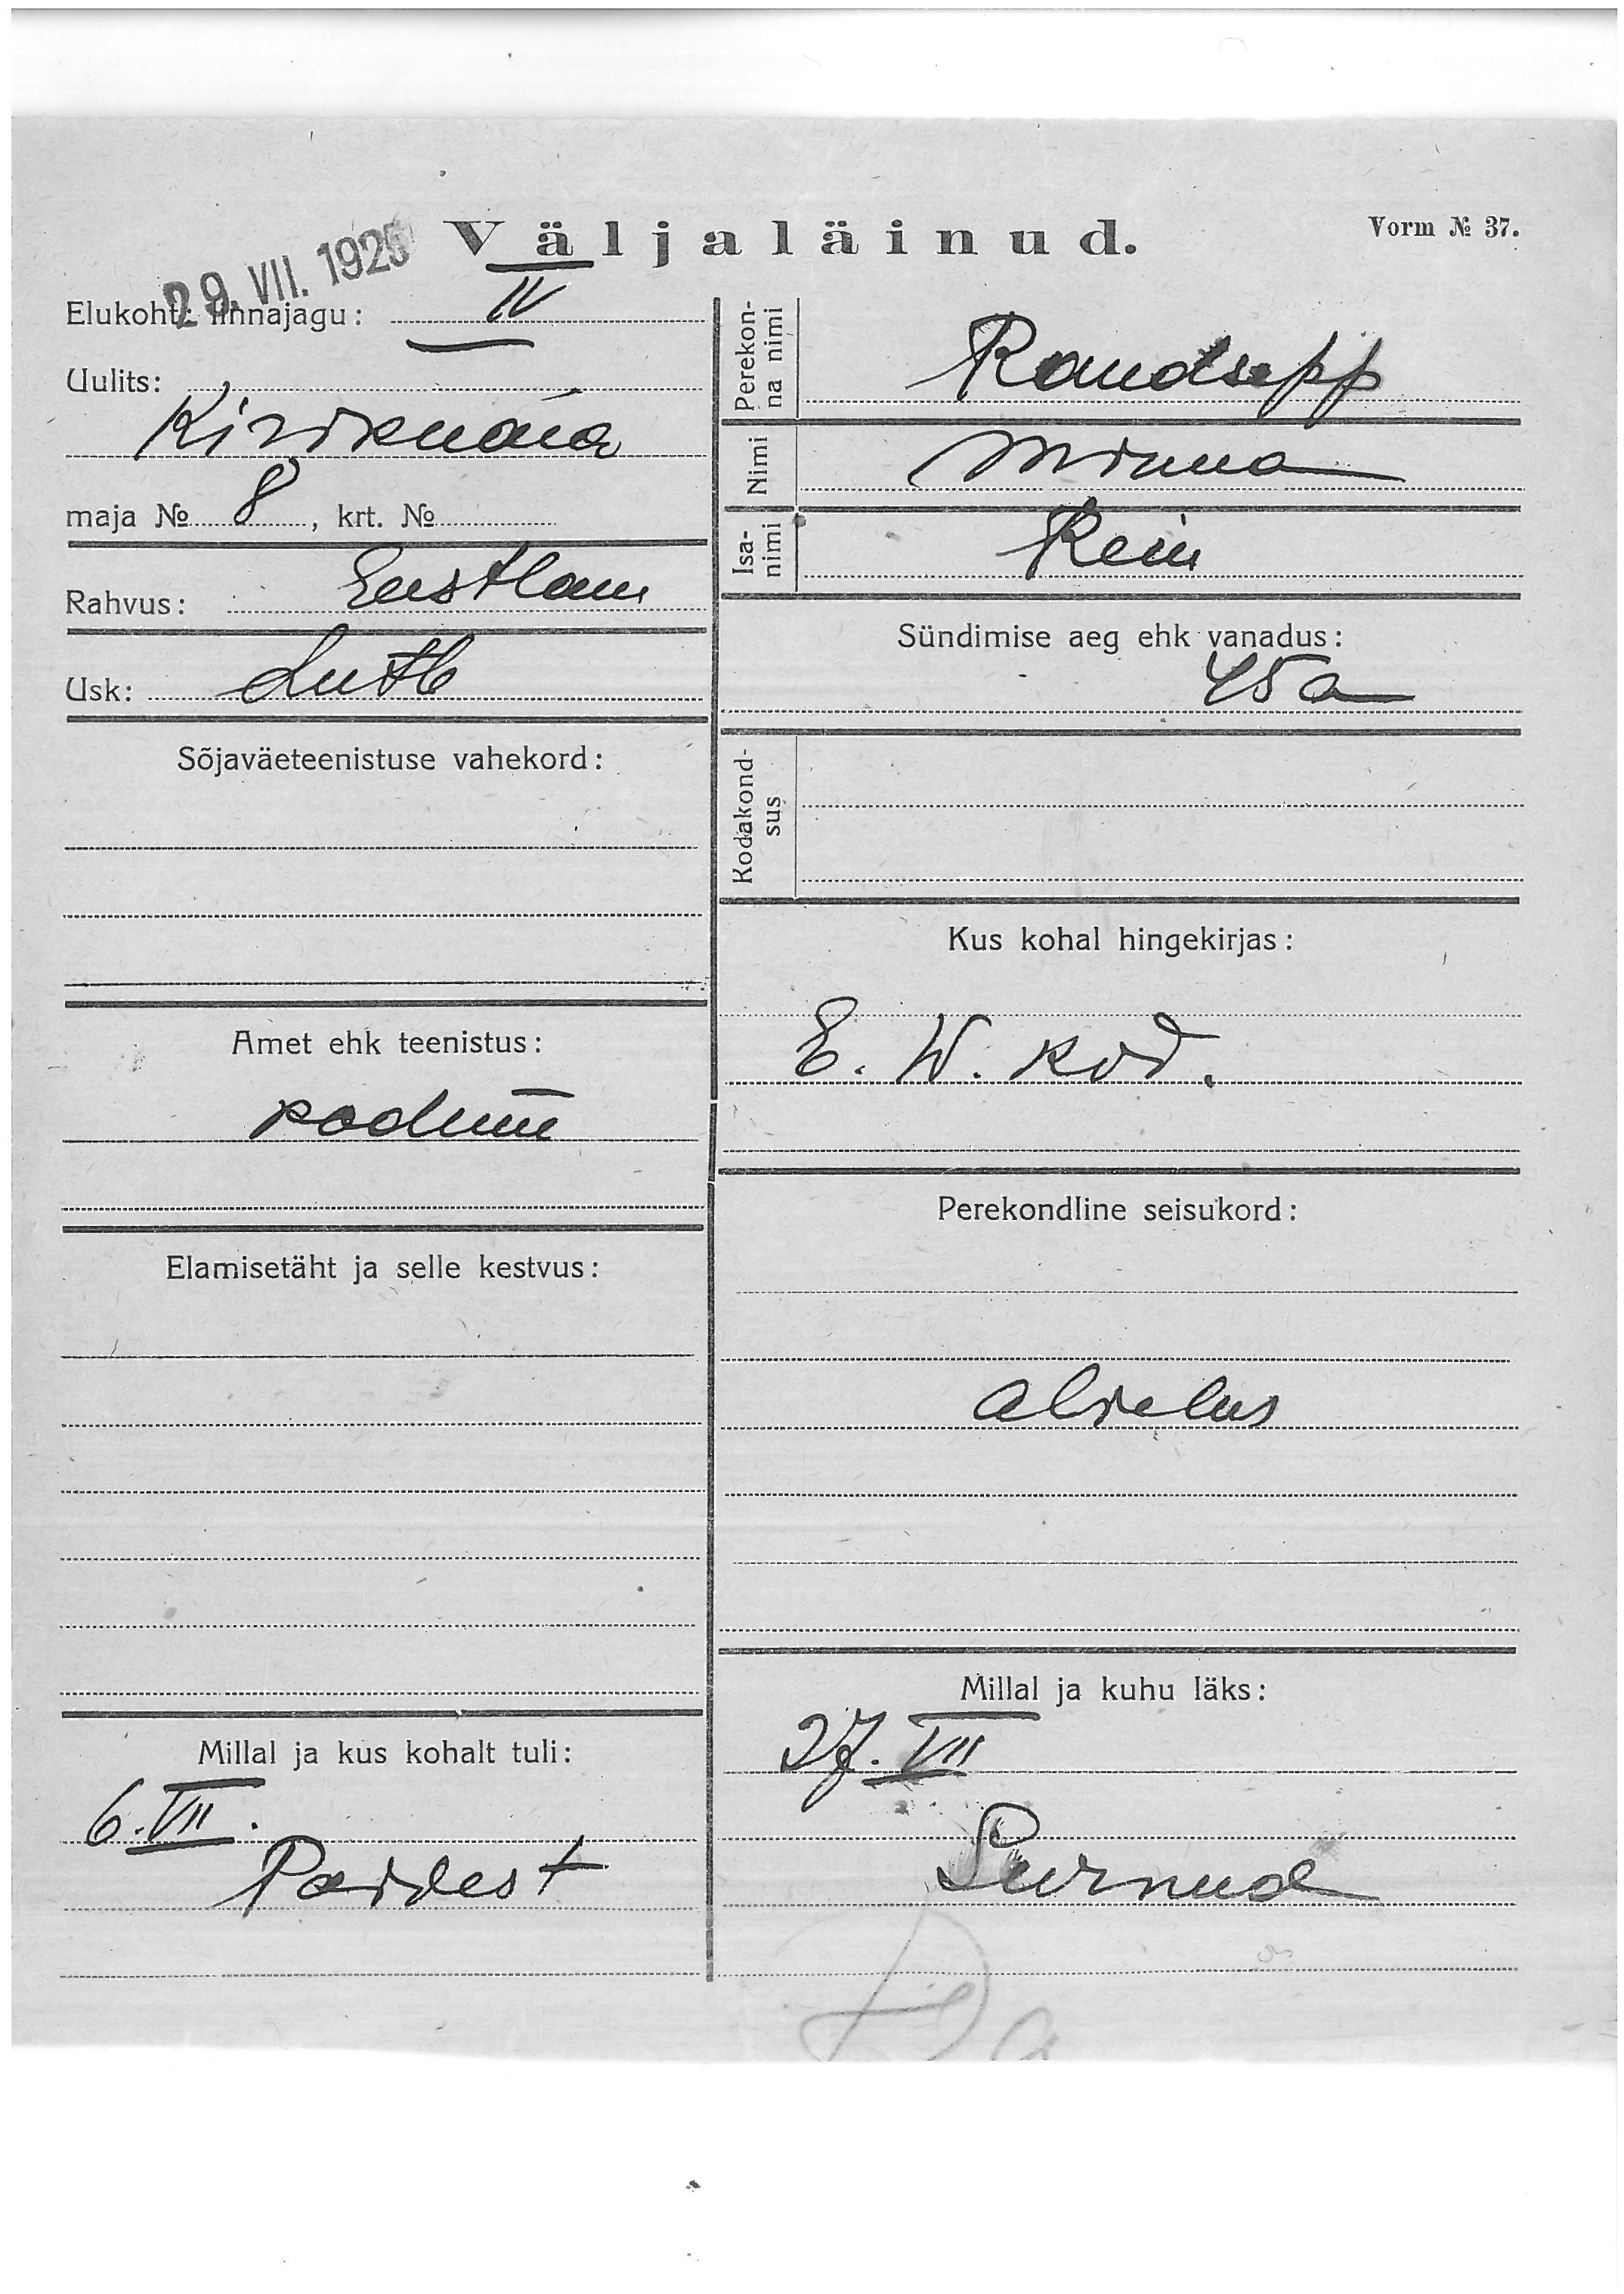 Väljaläinud.
Vorm № 37.
29. VII. 1925
Elukoht: linnajagu: IV
Uulits:
Kirikuaia
maja № 8, krt. №
Rahvus: Eestlane
Usk: Luth
Sõjaväeteenistuse vahekord:
Amet ehk teenistus:
kodune
Elamisetäht ja selle kestvus:
Millal ja kus kohalt tuli:
6. VII.
Paidest
Perekon-
na nimi
Raudsepp
Nimi
Minna
Isa-
nimi
Rein
Sündimise aeg ehk vanadus:
45 a
Kodakond-
sus
Kus kohal hingekirjas:
E. W. kod.
Perekondline seisukord:
abielus
Millal ja kuhu läks:
27. VII
Surnud